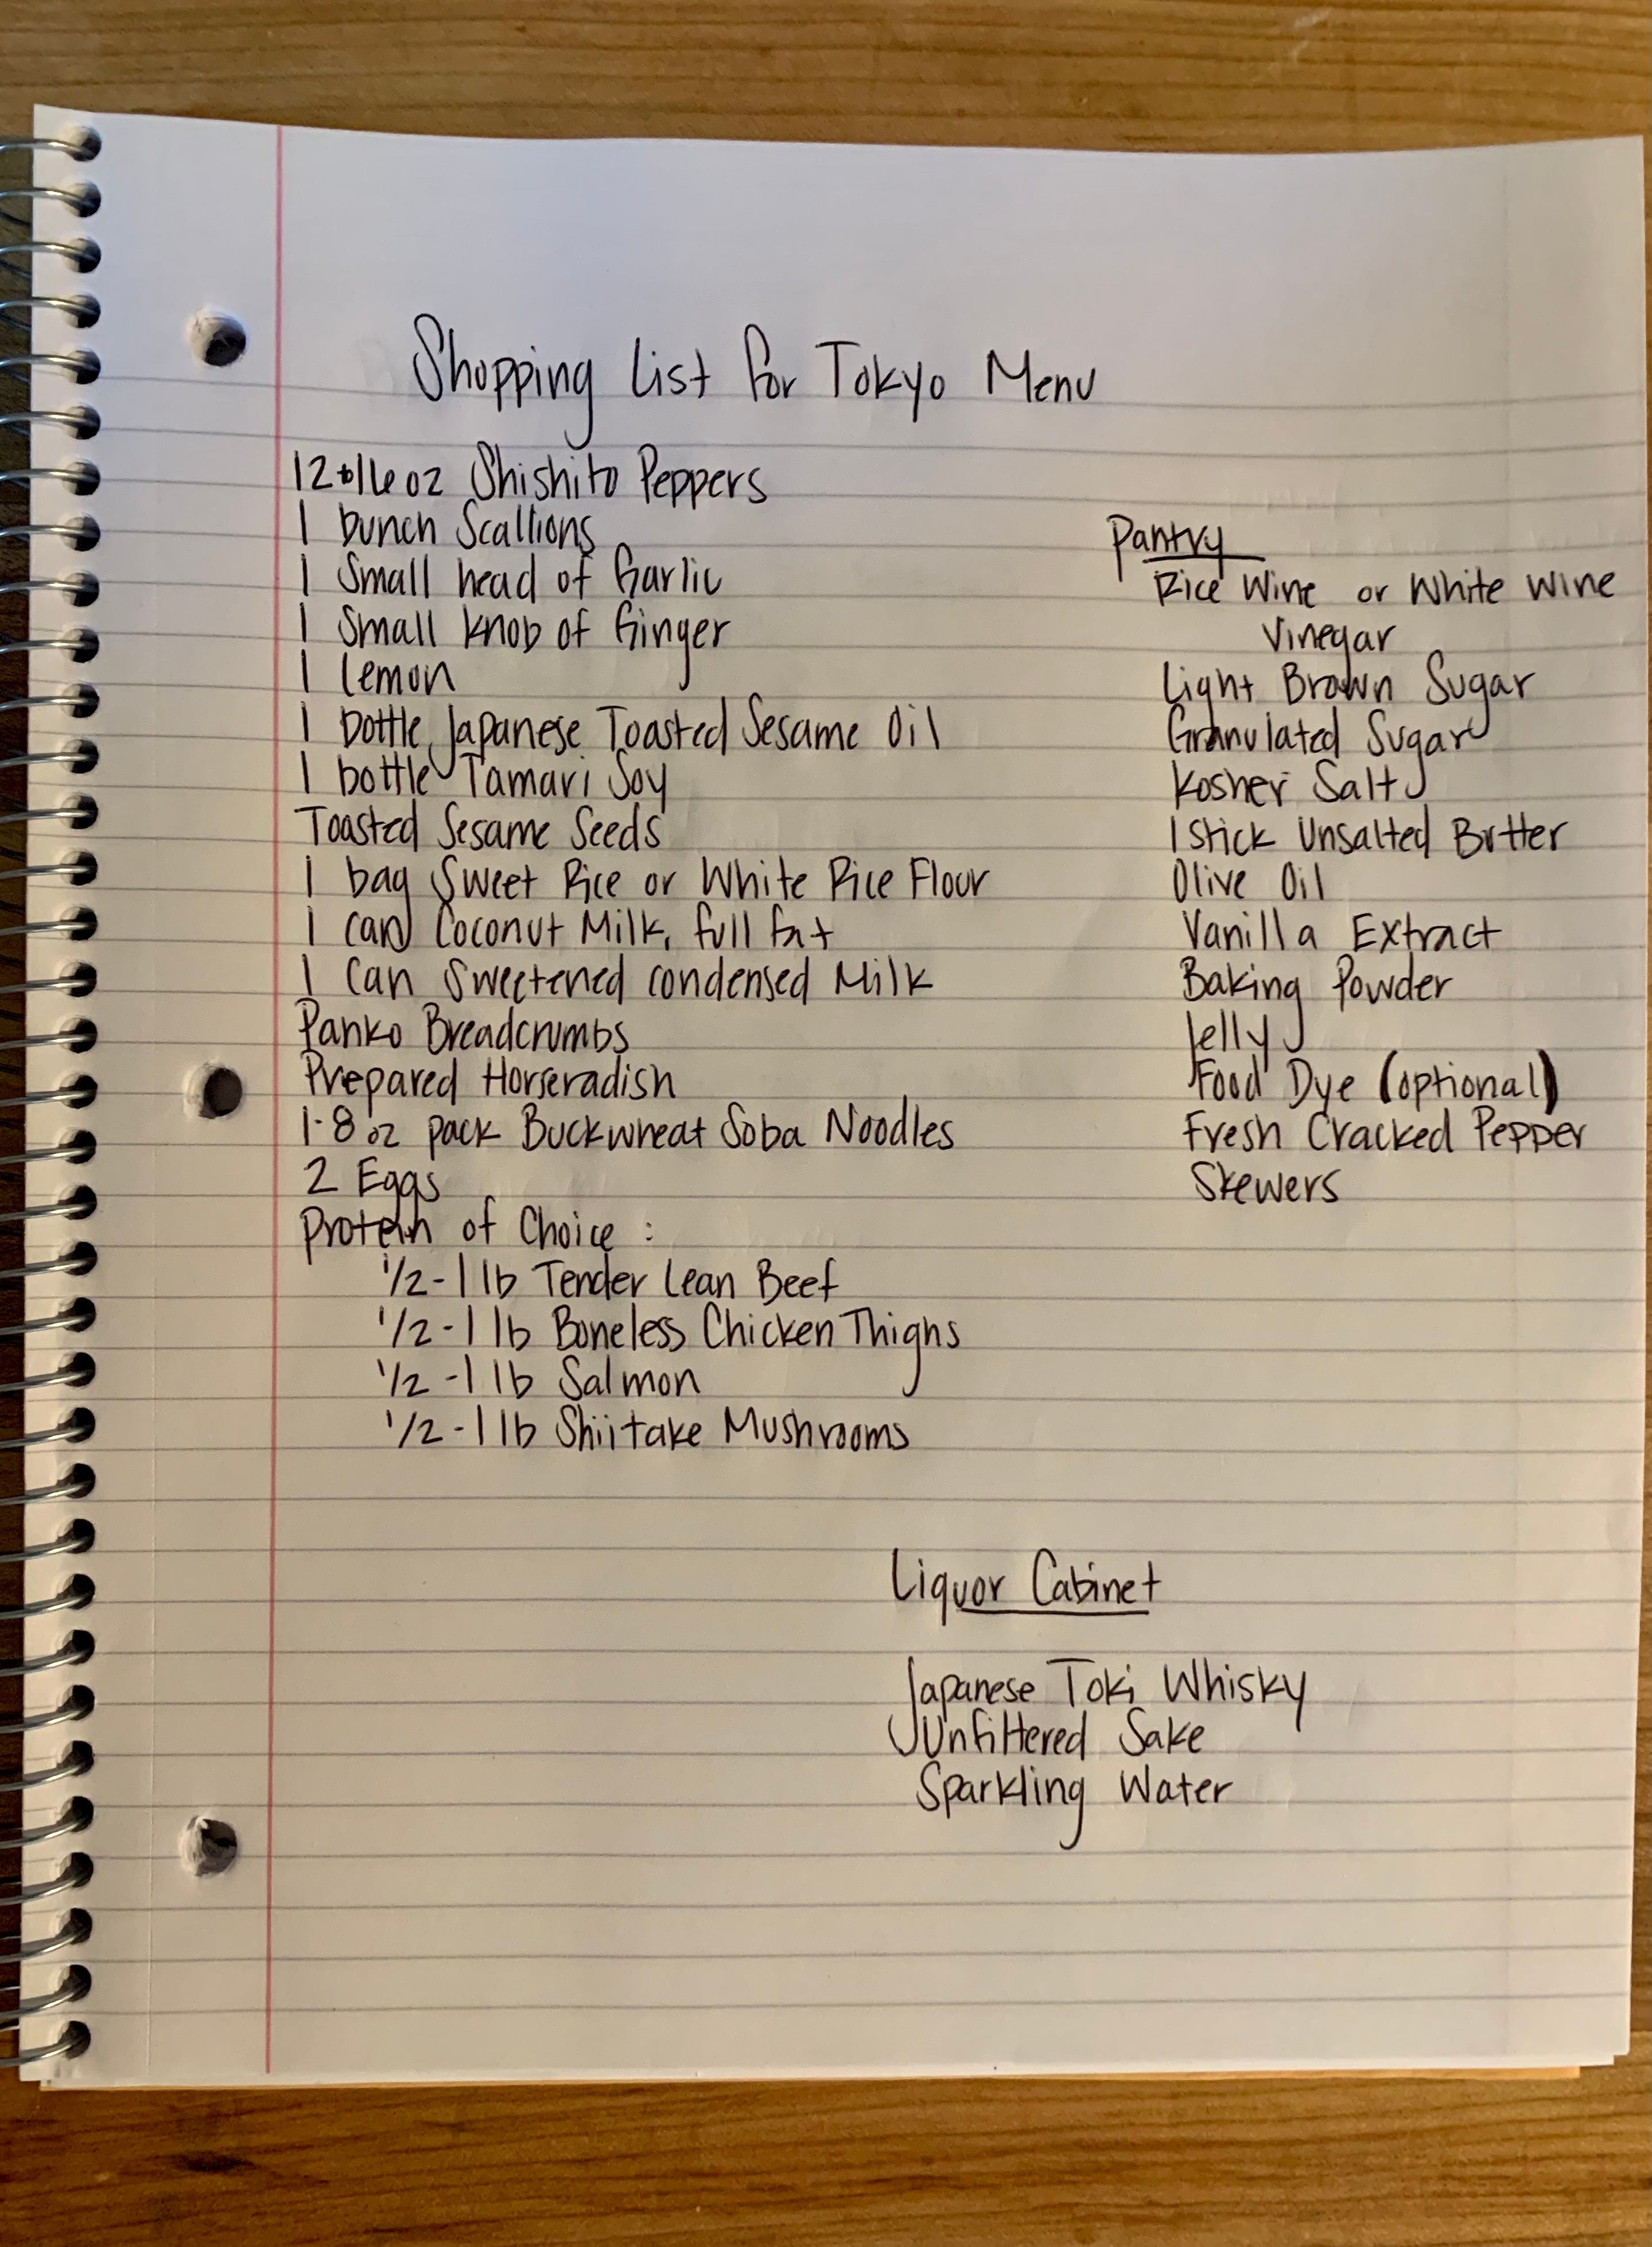 Shopping List for Tokyo Menu
12 to 16 oz Shishito Peppers
1 bunch Scallions
1 Small head of Garlic
1 Small knob of Ginger
1 lemon
1 bottle Japanese Toasted Sesame Oil
1 bottle Tamari Soy
Toasted Sesame Seeds
1 bag Sweet Rice or White Rice Flour
1 can Coconut Milk, full fat
1 Can Sweetened condensed Milk
Panko Breadcrumbs
Prepared Horseradish
1-8 oz pack Buckwheat Soba Noodles
2 Eggs
Protein of Choice :
1/2-1 lb Tender Lean Beef
1/2-1 lb Boneless Chicken Thighs
1/2-1 lb Salmon
1/2-1 lb Shiitake Mushrooms
Pantry
Rice Wine or White Wine
Vinegar
Light Brown Sugar
Granulated Sugar
Kosher Salt
1 stick Unsalted Butter
Olive Oil
Vanilla Extract
Baking Powder
Jelly
Food Dye (optional)
Fresh Cracked Pepper
Skewers
Liquor Cabinet
Japanese Toki Whisky
Unfiltered Sake
Sparkling Water